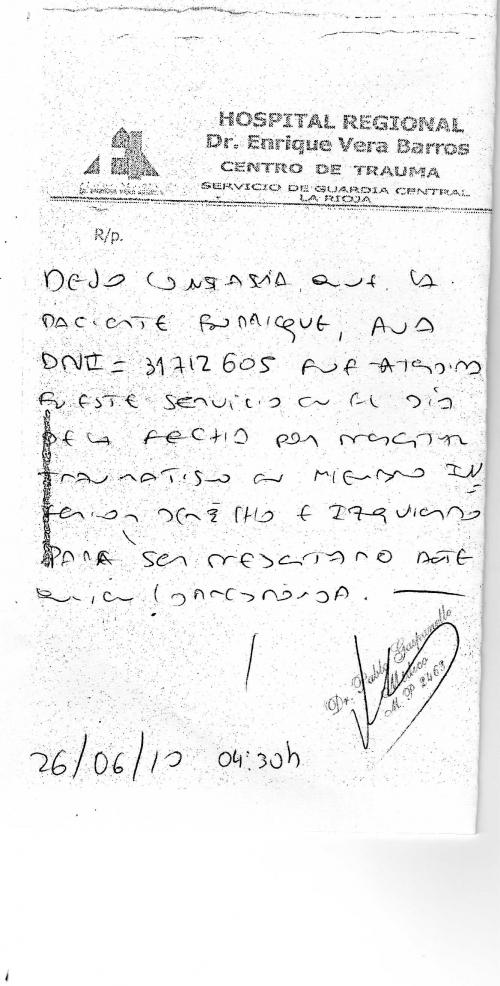 HOSPITAL REGIONAL
Dr. Enrique Vera Barros
CENTRO DE TRAUMA
SERVICIO DE GUARDIA CENTRAL
LA RIOJA
R/p.
DEJO CONSTANCIA que LA
PACIENTE MANRIQUE, ANA
DNI = 31712605 FUE ATENDIDA
EN ESTE SERVICIO EN EL DIA
DE LA FECHA POR PRESENTAR
TRAUMATISMO EN MIEMBRO IN
FERIOR DERECHO E IZQUIERDO
PARA SER PRESENTADO ANTE
QUIEN CORRESPONDA.
Dr. Pablo
Médico
M. P. 2463
26/06/10 04:30h